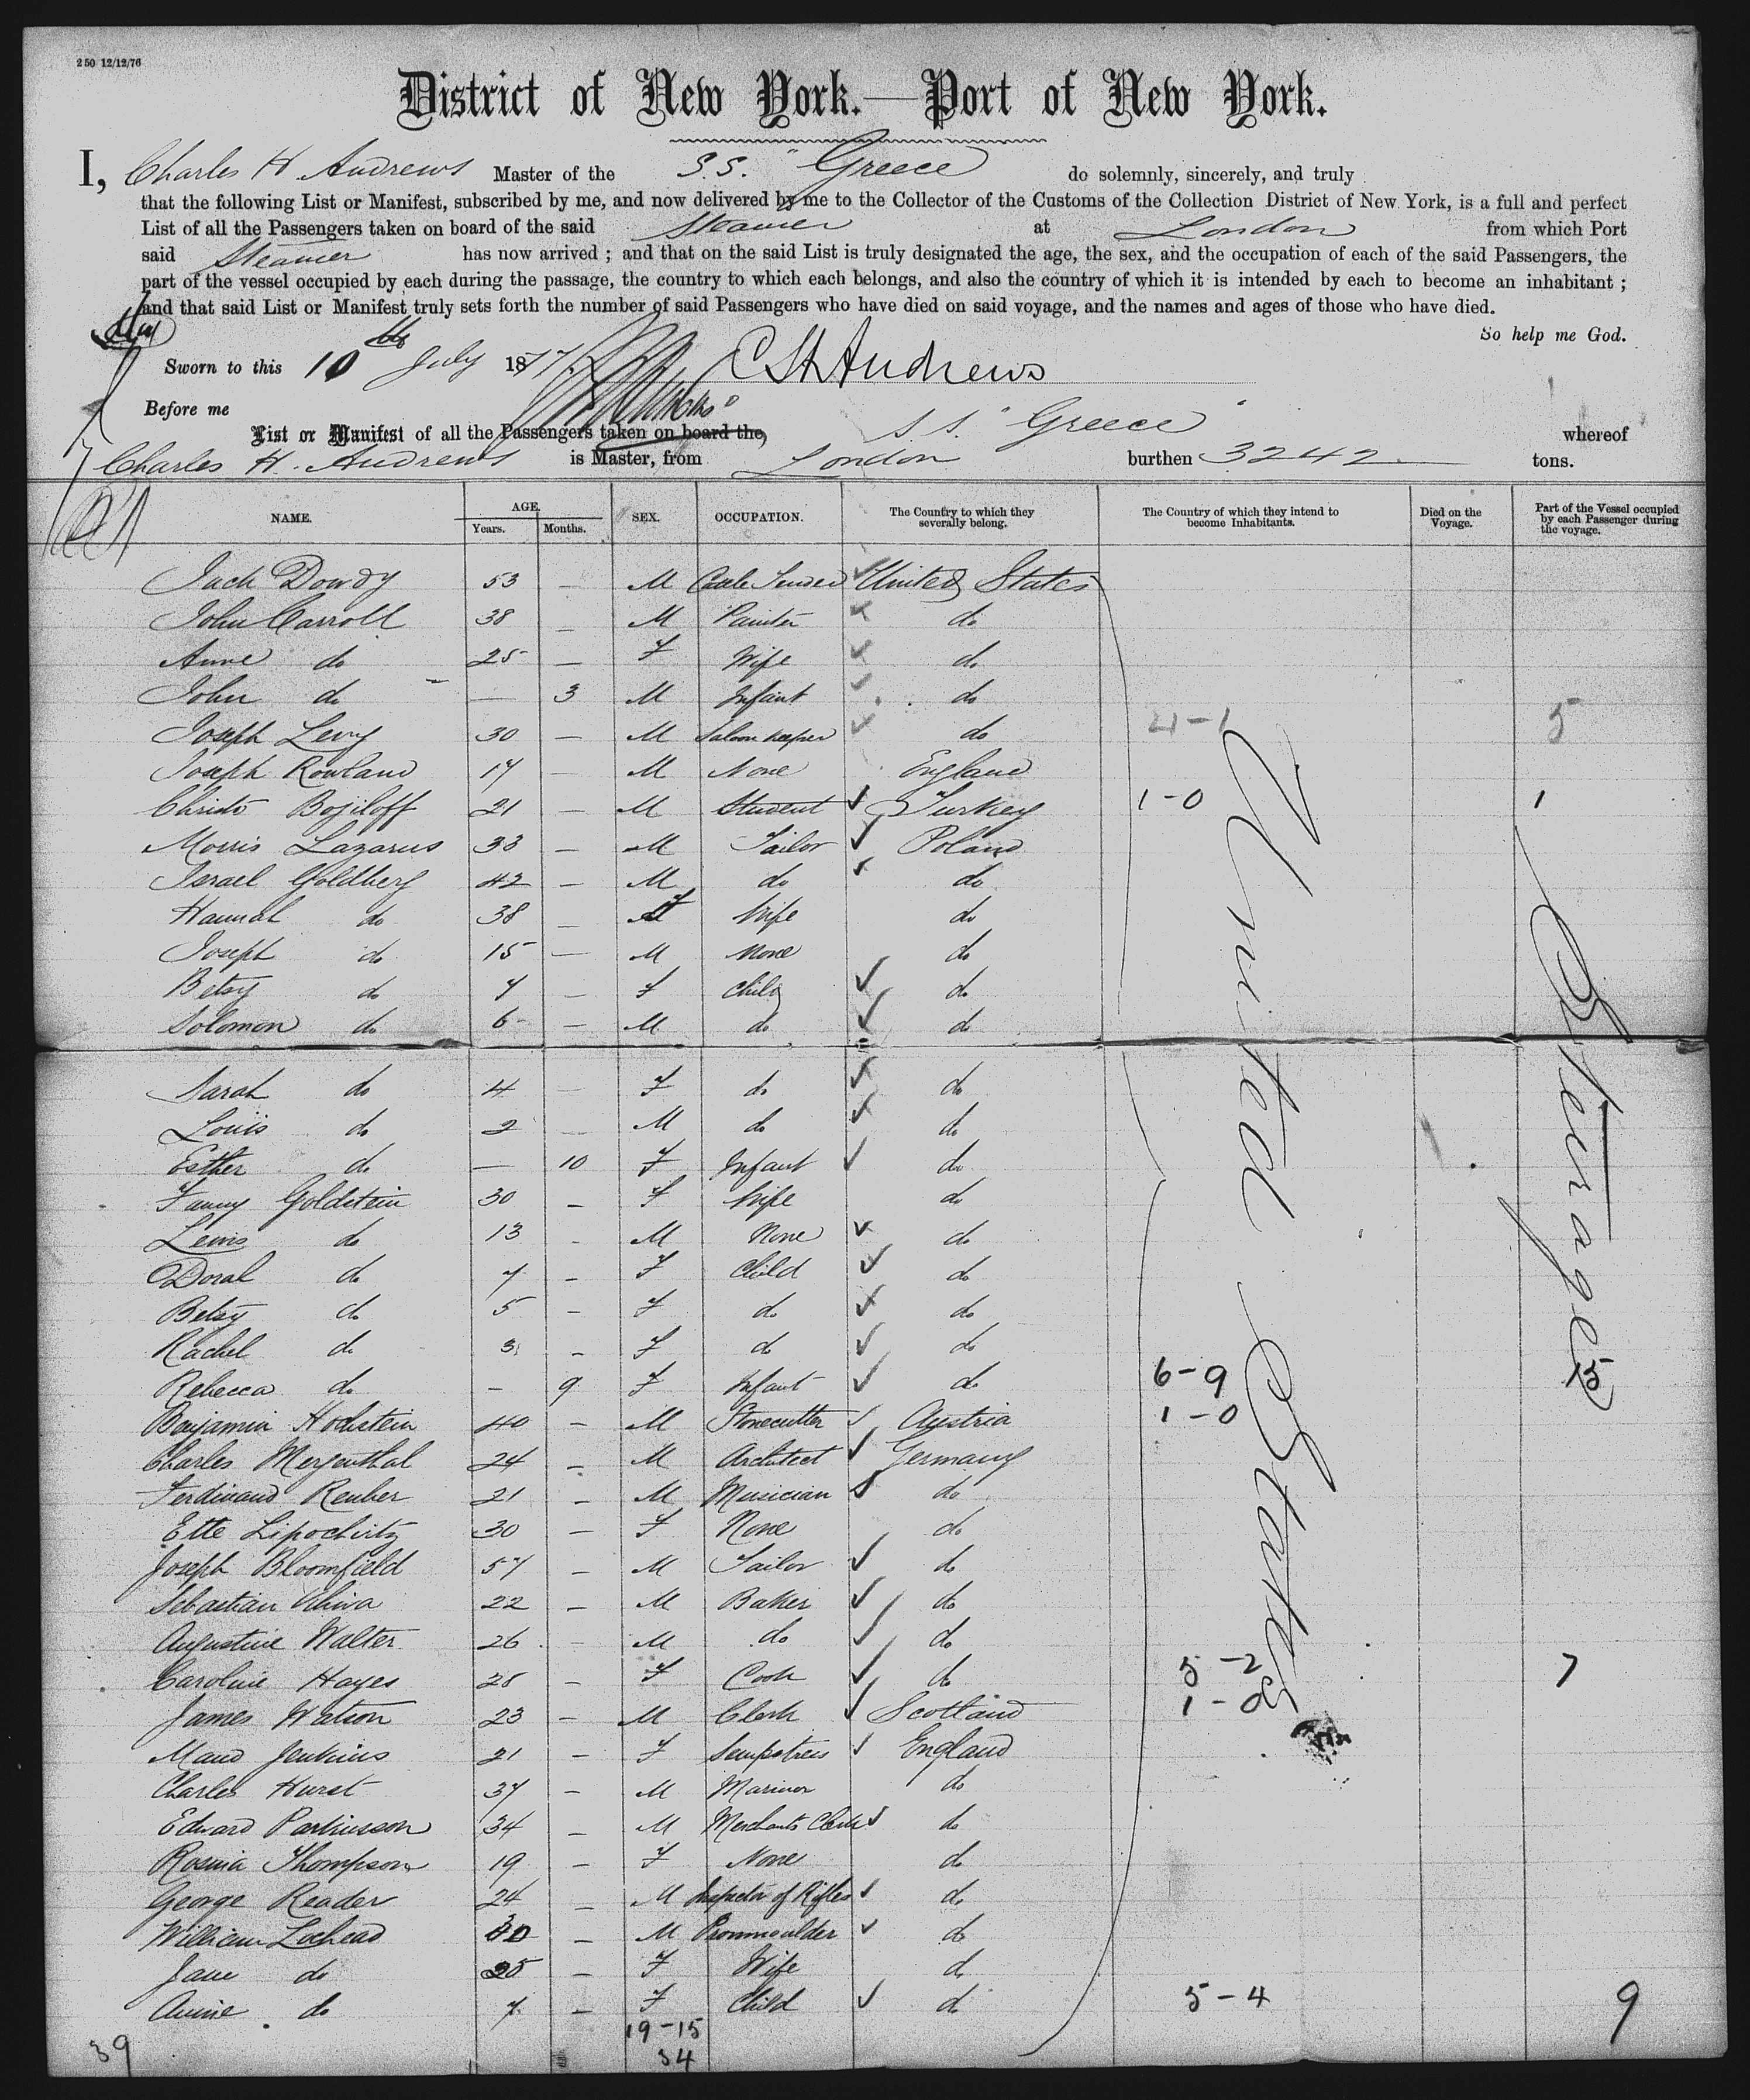 250 12/12/76
District of New York.—Port of New York.
I, Charles H. Andrews Master of the S.S. "Greece do solemnly, sincerely, and truly
that the following List or Manifest, subscribed by me, and now delivered by me to the Collector of the Customs of the Collection District of New York, is a full and perfect
List of all the Passengers taken on board of the said Steamer at London from which Port
said Steamer has now arrived ; and that on the said List is truly designated the age, the sex, and the occupation of each of the said Passengers, the
part of the vessel occupied by each during the passage, the country to which each belongs, and also the country of which it is intended by each to become an inhabitant ;
and that said List or Manifest truly sets forth the number of said Passengers who have died on said voyage, and the names and ages of those who have died.
So help me God.
Sworn to this 10th July 1877. C H Andrews
Before me
List or Manifest of all the Passengers taken on board the, S.S. "Greece" whereof
Charles H. Andrews is Master, from London burthen 3242 tons.
NAME. AGE. Years. Months. SEX. OCCUPATION. The Country to which they severally belong. The Country of which they intend to become Inhabitants. Died on the Voyage. Part of the Vessel occupied by each Passenger during the voyage.
Jack Dowdy 53 — M United States
John Carroll 38 — M Painter do
Anne do 25 — F Wife do
John do — 3 M Infant do
Joseph Levy 30 — M Saloon keeper do 4-1 5
Joseph Rowland 17 — M None England
Christo Bojiloff 21 — M Student Turkey 1-0 1
Morris Lazarus 33 — M Tailor Poland
Israel Goldberg 42 — M do do
Hannah do 38 — F Wife do
Joseph do 15 — M None do
Betsy do 7 — F Child do
Solomon do 6 — M do do
Sarah do 4 — F do do
Louis do 2 — M do do
Esther do — 10 F Infant do
Fanny Goldstein 30 — F Wife do
Lewis do 13 - M None do
Dorah do 7 - F Child do
Betsy do 5 - F do do
Rachel do 3 - F do do
Rebecca do - 9 F Infant do 6-9 15
Benjamin Hochstein 40 - M Stonecutter Austria 1-0
Charles Mergenthal 24 - M Architect Germany
Ferdinand Reuber 21 - M Musician do
Ette Lipochitz 30 - F None do
Joseph Bloomfield 57 - M Tailor do
Sebastian 22 - M Baker do
Augustine Walter 26 - M do do
Caroline Hayes 28 - F Cook do 5-2 7
James Watson 23 - M Clerk Scotland 1-0
Maud Jenkins 21 - F Sempstress England
Charles Hurst 37 - M Mariner do
Edward Parkinson 34 - M Merchants Clerk do
Rosina Thompson 19 - F None do
George Reader 24 - M Inspector of Rifles do
William Lochead 30 - M Ironmoulder do
Jane do 25 - F Wife do
Annie do 7 - F Child do 5-4 9
United States
Steerage
19-15
34
39